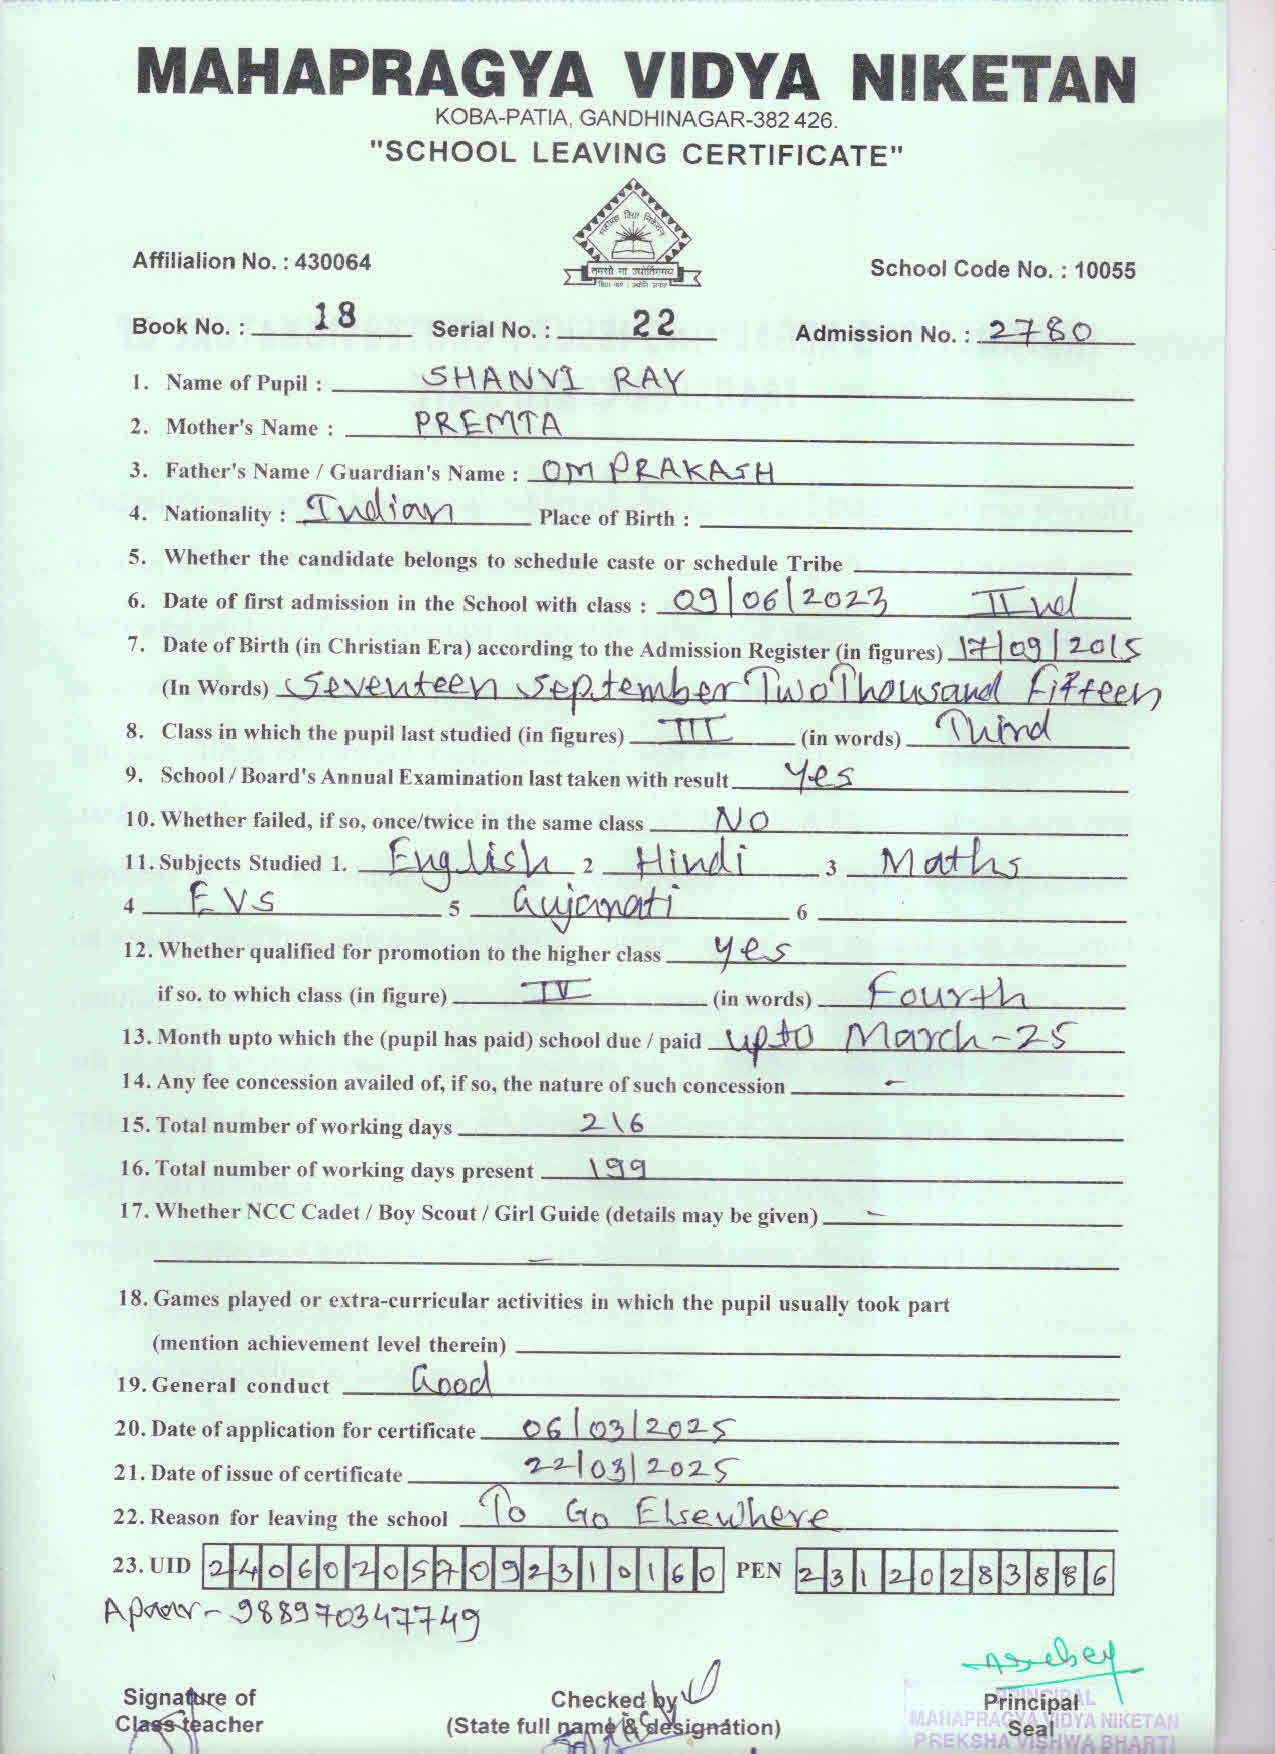 MAHAPRAGYA VIDYA NIKETAN
KOBA-PATIA, GANDHINAGAR-382 426.
"SCHOOL LEAVING CERTIFICATE"
महाप्रज्ञ विद्या निकेतन
तमसो मा ज्योतिर्गमय
Affilialion No. : 430064
School Code No. : 10055
Book No. : 18 Serial No. : 22 Admission No. : 2780
1. Name of Pupil : SHANVI RAY
2. Mother's Name : PREMTA
3. Father's Name / Guardian's Name : OM PRAKASH
4. Nationality : Indian Place of Birth :
5. Whether the candidate belongs to schedule caste or schedule Tribe
6. Date of first admission in the School with class : 09/06/2023 IInd
7. Date of Birth (in Christian Era) according to the Admission Register (in figures) 17/09/2015
(In Words) Seventeen September Two Thousand Fifteen
8. Class in which the pupil last studied (in figures) III (in words) Third
9. School / Board's Annual Examination last taken with result Yes
10. Whether failed, if so, once/twice in the same class NO
11. Subjects Studied 1. English 2 Hindi 3 Maths
4 EVS 5 Gujarati 6
12. Whether qualified for promotion to the higher class yes
if so. to which class (in figure) IV (in words) Fourth
13. Month upto which the (pupil has paid) school due / paid upto March-25
14. Any fee concession availed of, if so, the nature of such concession -
15. Total number of working days 216
16. Total number of working days present 199
17. Whether NCC Cadet / Boy Scout / Girl Guide (details may be given) -
-
18. Games played or extra-curricular activities in which the pupil usually took part
(mention achievement level therein)
19. General conduct Good
20. Date of application for certificate 06/03/2025
21. Date of issue of certificate 22/03/2025
22. Reason for leaving the school To Go Elsewhere
23. UID 240602057092310160 PEN 23120283886
Apaar - 988970347749
Signature of
Class teacher
Checked by
(State full name & designation)
Principal
Seal
PRINCIPAL
MAHAPRAGYA VIDYA NIKETAN
PREKSHA VISHWA BHARTI